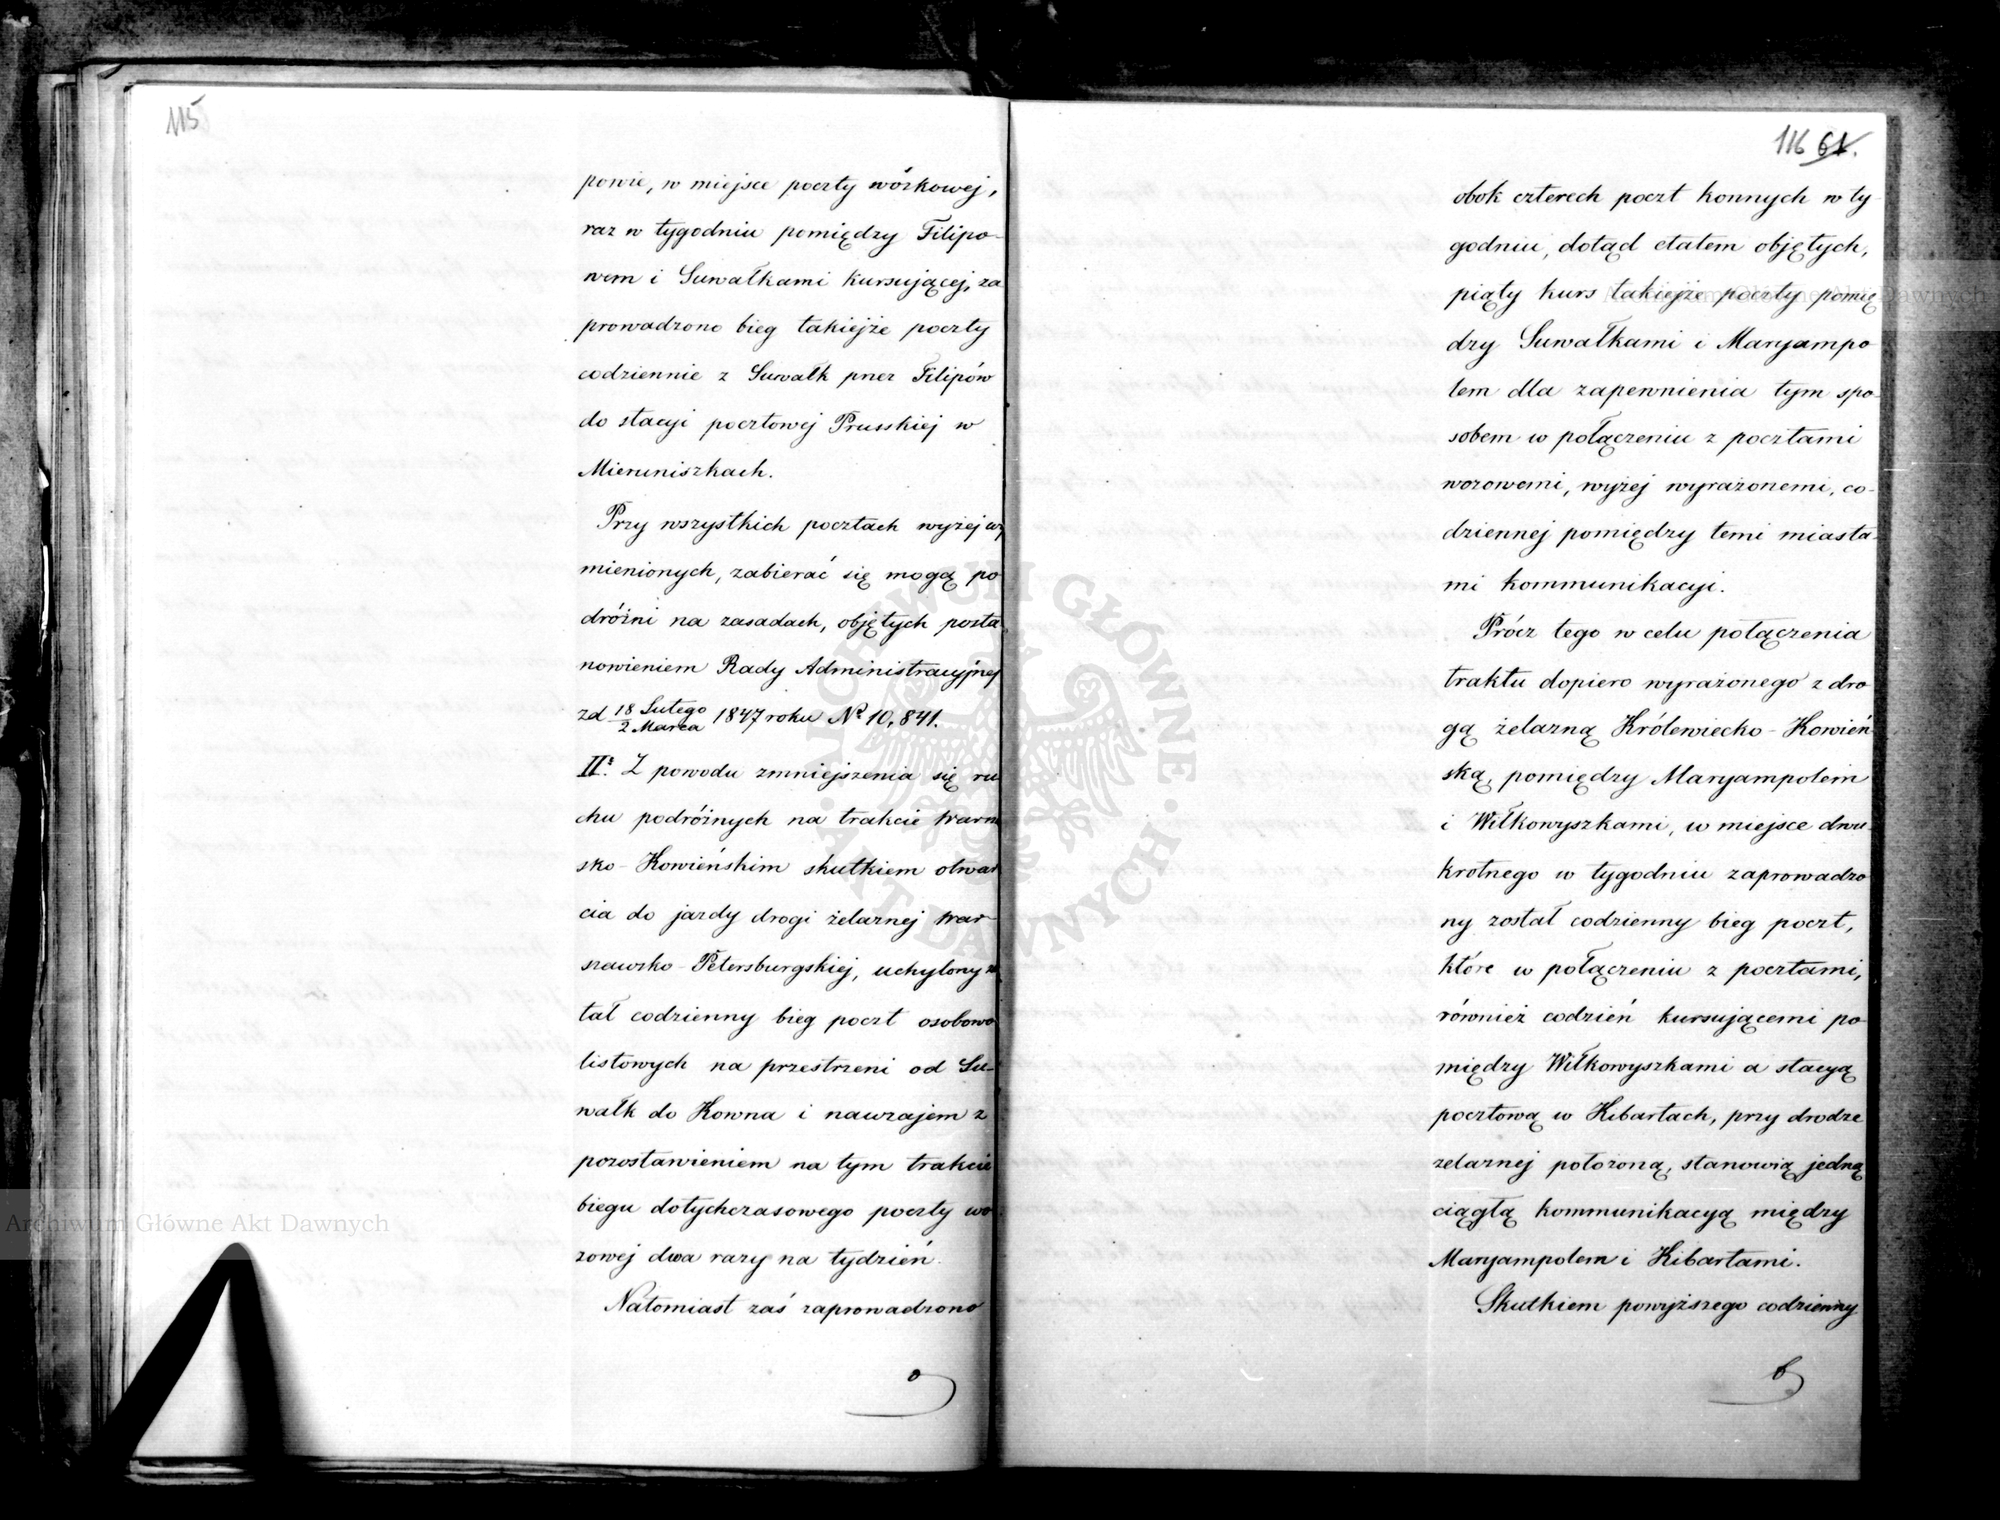 115
powie, w miejsce poczty wózkowej,
raz w tygodniu pomiędzy Filipo-
wem i Suwałkami kursującej, za
prowadzono bieg takiejże poczty
codziennie z Suwałk przez Filipów
do stacyi pocztowej Prusskiej w
Mieruniszkach.
Przy wszystkich pocztach wyżej wy
mienionych, zabierać się mogą po
dróżni na zasadach, objętych posta
nowieniem Rady Administracyjnej
zd 18 Lutego / 2 Marca 1847 roku Nº 10,841.
IIº. Z powodu zmniejszenia się ru
chu podróżnych na trakcie Warsz
sko-Kowieńskim skutkiem otwar
cia do jazdy drogi żelaznej War-
szawsko-Petersburgskiej, uchylony zo
tał codzienny bieg poczt osobowo
listowych na przestrzeni od Su-
wałk do Kowna i nawzajem z
pozostawieniem na tym trakcie
biegu dotychczasowego poczty wo
zowej dwa razy na tydzień.
Natomiast zaś zaprowadzono
116 61.
obok czterech poczt konnych w ty-
godniu, dotąd etatem objętych,
piąty kurs takiejże poczty pomię
dzy Suwałkami i Maryampo
lem dla zapewnienia tym spo-
sobem w połączeniu z pocztami
wozowemi, wyżej wyrażonemi, co-
dziennej pomiędzy temi miasta-
mi kommunikacyi.
Prócz tego w celu połączenia
traktu dopiero wyrażonego z dro
gą żelazną Królewiecko-Kowień
ską, pomiędzy Maryampolem
i Wiłkowyszkami, w miejsce dwu-
krotnego w tygodniu zaprowadzo
ny został codzienny bieg poczt,
które w połączeniu z pocztami,
również codzień kursującemi po-
między Wiłkowyszkami a stacyą
pocztową w Kibartach, przy drodze
żelaznej położoną, stanowią jedną
ciągłą kommunikacyą między
Maryampolem i Kibartami.
Skutkiem powyższego codzienny
Archiwum Główne Akt Dawnych
Archiwum Główne Akt Dawnych
ARCHIWUM GŁÓWNE · AKT DAWNYCH ·